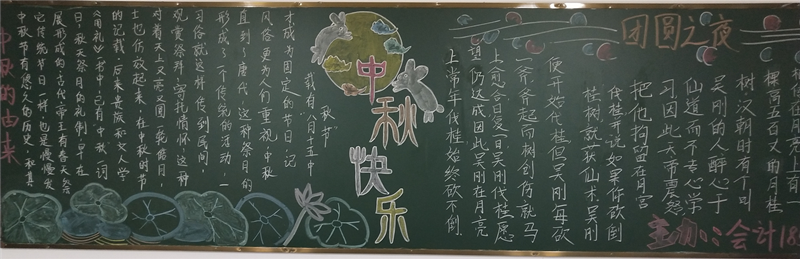 中秋的由来
中秋节有悠久的历史，和其
它传统节日一样，也是慢慢发
展形成的，古代帝王有春天祭
日，秋天祭月的礼制，早在
《周礼》书中，已有“中秋”一词
的记载。后来贵族和文人学
士也仿效起来，在中秋时节
对着天上又亮又圆一轮皓月，
观赏祭拜，寄托情怀，这种
习俗就这样传到民间，
形成了一个传统的活动，一
直到了唐代，这种祭月的
风俗更为人们重视，中秋
才成为固定的节日，记
载有八月十五中
秋节”
中秋快乐
团圆之夜
相传在月亮上有一
棵高五百丈的月桂
树。汉朝时有个叫
吴刚的人，醉心于
仙道而不专心学
习，因此天帝震怒
把他拘留在月宫
伐桂，并说如果你砍倒
桂树，就获仙术。吴刚
便开始伐桂，但吴刚每砍
一斧，斧起而树创伤就马
上愈合，日复一日，吴刚伐桂愿
望仍达成，因此吴刚在月亮
上常年伐桂，始终砍不倒
主办：会计18